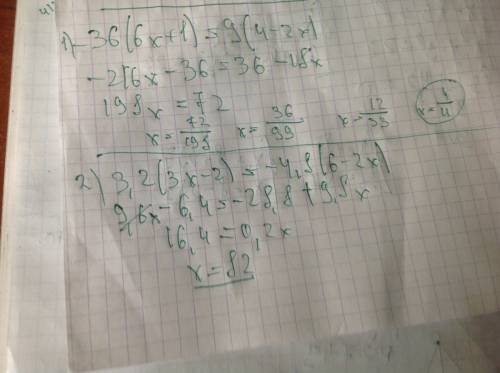 1) -36(6x+1)=9(4-2x)
-216x-36=36-18x
198x=72
x=72/198 x=36/99 x=12/33 x=4/11
2) 3,2(3x-2)=-4,9(6-2x)
9,6x-6,4=-28,8+9,8x
16,4=0,2x
x=82